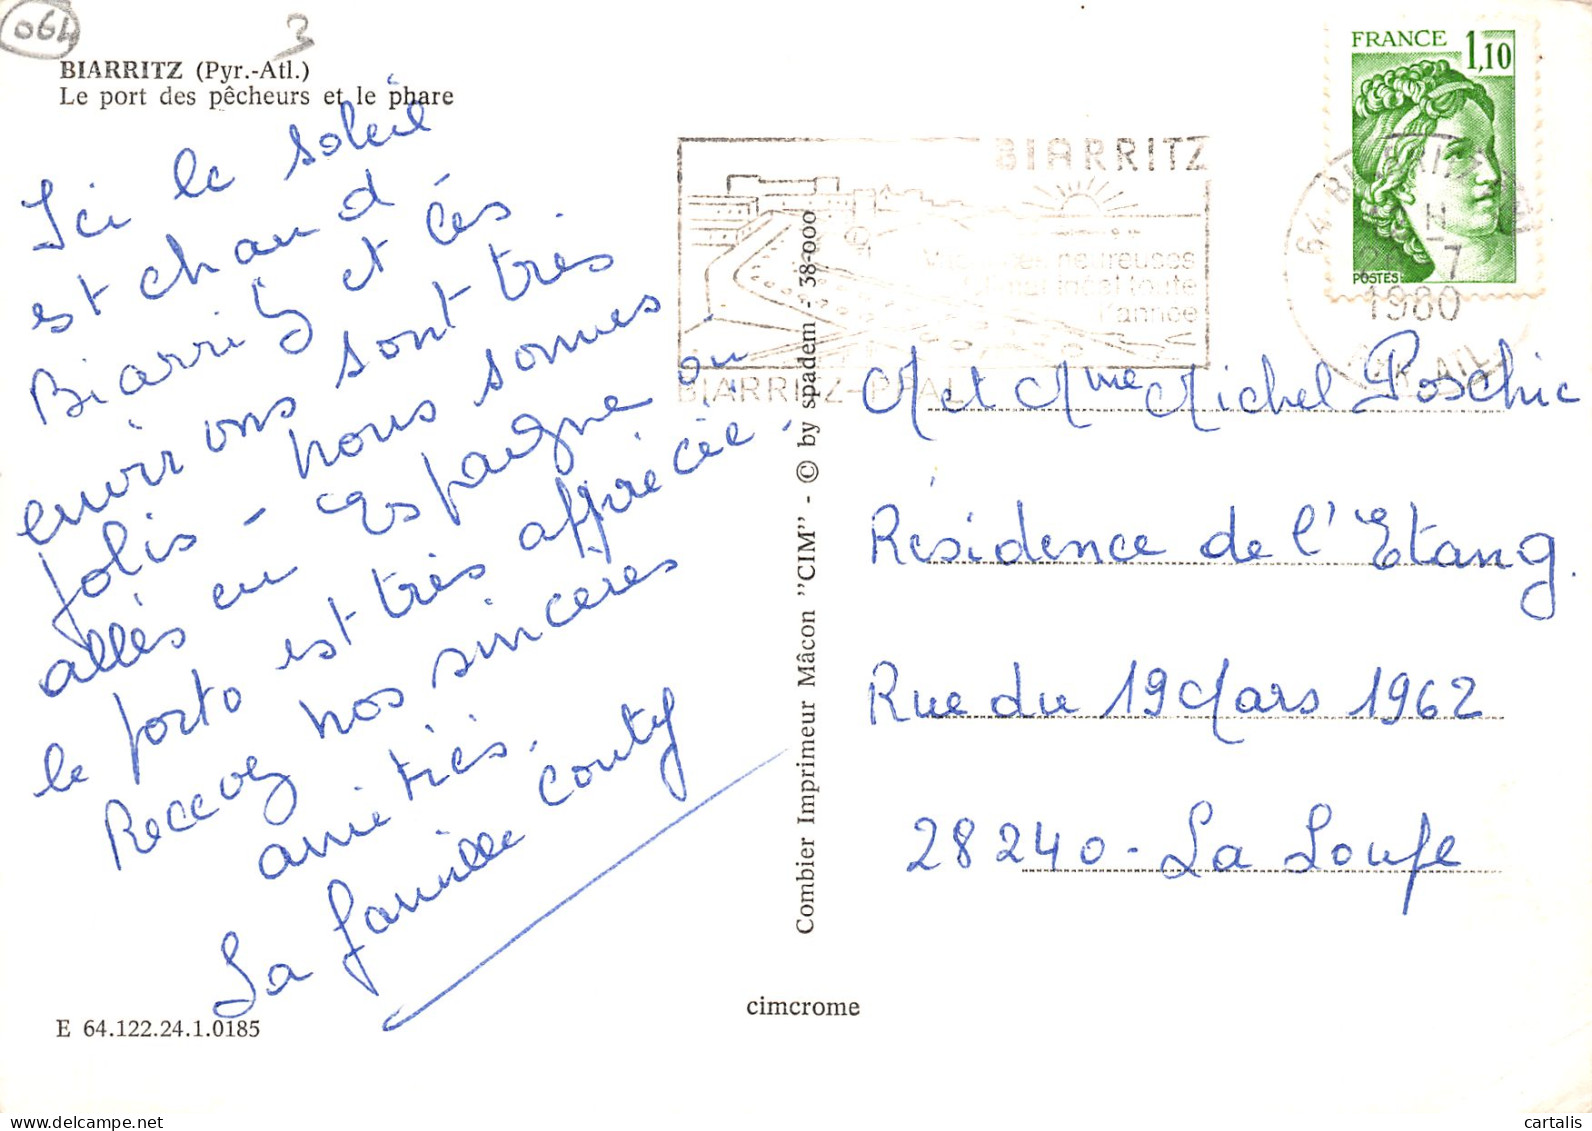 064
3
BIARRITZ (Pyr.-Atl.)
Le port des pêcheurs et le phare
Ici le soleil
est chaud
Biarritz et ces
environs sont très
jolis - nous sommes
allés en Espagne ou
le porto est très apprécié.
Recevez nos sincères
amitiés.
La famille Couty
E 64.122.24.1.0185
Combier Imprimeur Mâcon "CIM" - © by spadem - 38-000
cimcrome
BIARRITZ
heureuses
toute
l'année
BIARRITZ-PPAL
FRANCE
1,10
POSTES
64 BIARRITZ
7
1980
ATL
M et Mme Michel Poschic
Résidence de l'Etang
Rue du 19 Mars 1962
28240 - La Loupe
www.delcampe.net
cartalis